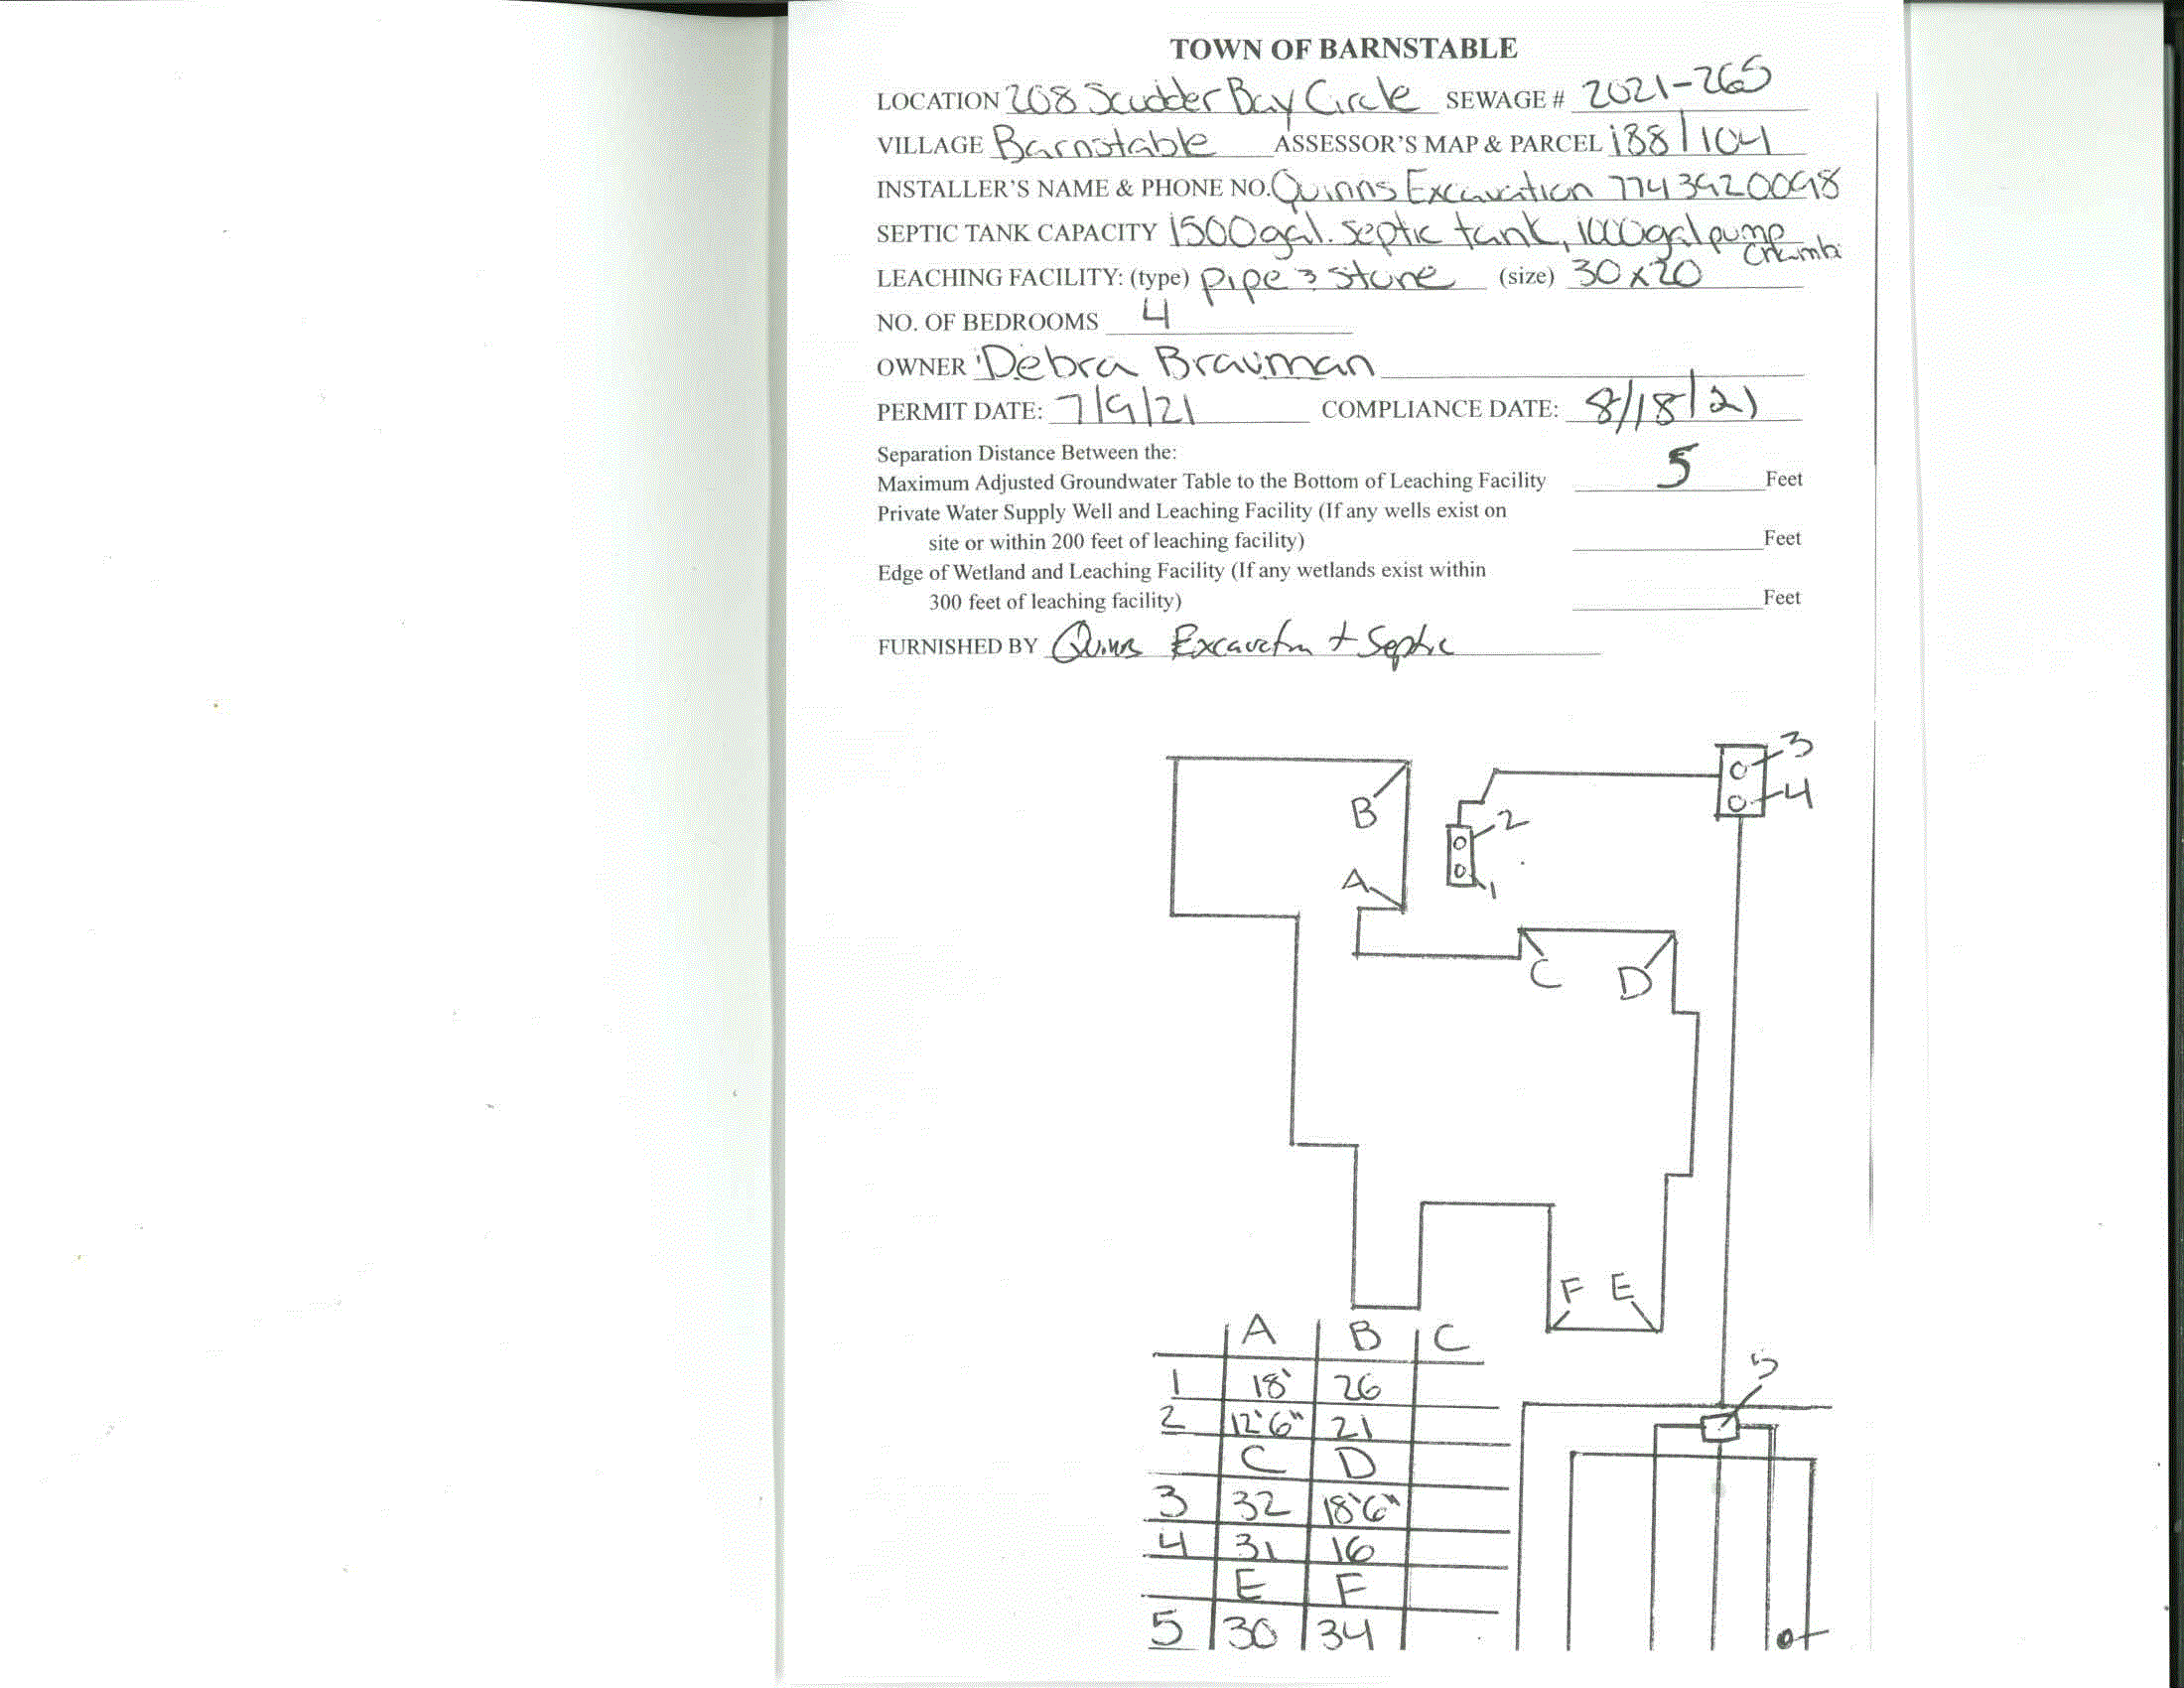 TOWN OF BARNSTABLE
LOCATION 208 Scudder Bay Circle SEWAGE # 2021-265
VILLAGE Barnstable ASSESSOR'S MAP & PARCEL 188/104
INSTALLER'S NAME & PHONE NO. Quinns Excavation 7743920098
SEPTIC TANK CAPACITY 1500gal. septic tank, 1000gal pump
LEACHING FACILITY: (type) pipe & stone (size) 30x20
NO. OF BEDROOMS 4
OWNER Debra Brauman
PERMIT DATE: 7/9/21 COMPLIANCE DATE: 8/18/21
Separation Distance Between the:
Maximum Adjusted Groundwater Table to the Bottom of Leaching Facility 5 Feet
Private Water Supply Well and Leaching Facility (If any wells exist on
site or within 200 feet of leaching facility) Feet
Edge of Wetland and Leaching Facility (If any wetlands exist within
300 feet of leaching facility) Feet
FURNISHED BY Quinns Excavation + Septic
3
B 4
2
A 1
C D
F E
A B C
5
1 18' 26
2 12'6" 21
C D
3 32 18'6"
4 31 16
E F
5 30 34